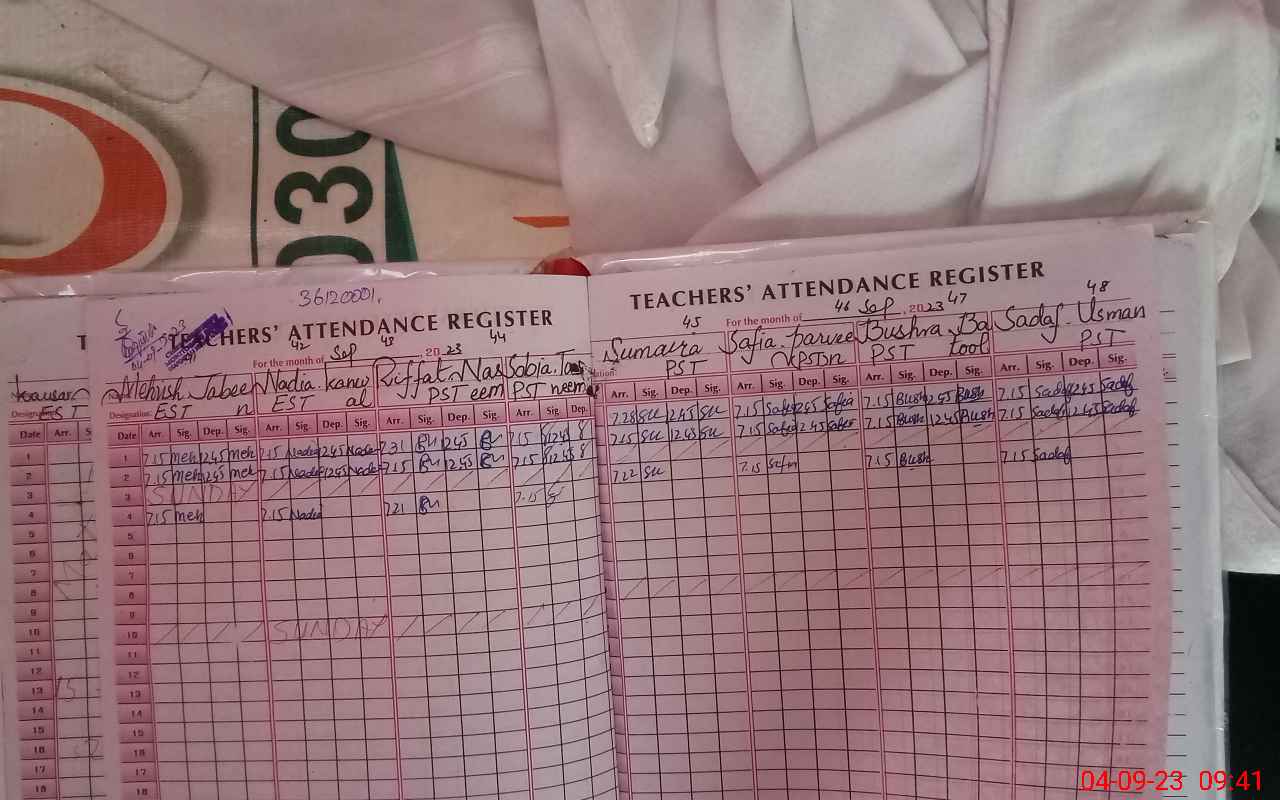 030
36120001,
TEACHERS' ATTENDANCE REGISTER
For the month of Sep, 2023
42 43 44
Kausar
EST
Mehish Jabeen
EST
Nadia kanwal
EST
Riffat Naseem
PST
Sobia Tasneem
PST
Designation:
Date Arr. Sig. Dep. Sig. Arr. Sig. Dep. Sig. Arr. Sig. Dep. Sig. Arr. Sig. Dep.
1 7.15 meh 1245 meh 7.15 Nadia 1245 Nadia 7.31 1245 7.15 1245
2 7.15 meh 1245 meh 7.15 Nadia 1245 Nadia 7.15 1245 7.15 1245
3 SUNDAY
4 7.15 meh 7.15 Nadia 7.21 7.15
5
6
7
8
9
10 SUNDAY
11
12
13
14
15
16
17
18
TEACHERS' ATTENDANCE REGISTER
For the month of Sep, 2023
45 46 47 48
Sumaira
PST
Safia parveen
PST
Bushra Batool
PST
Sadaf Usman
PST
Arr. Sig. Dep. Sig. Arr. Sig. Dep. Sig. Arr. Sig. Dep. Sig. Arr. Sig. Dep. Sig.
7.28 Su 1245 Su 7.15 Safia 1245 Safia 7.15 Bush 1245 Bush 7.15 Sadaf 1245 Sadaf
7.15 Su 1245 Su 7.15 Safia 1245 Safia 7.15 Bush 1245 Bush 7.15 Sadaf 1245 Sadaf
7.22 Su 7.15 Safia 7.15 Bush 7.15 Sadaf
04-09-23 09:41